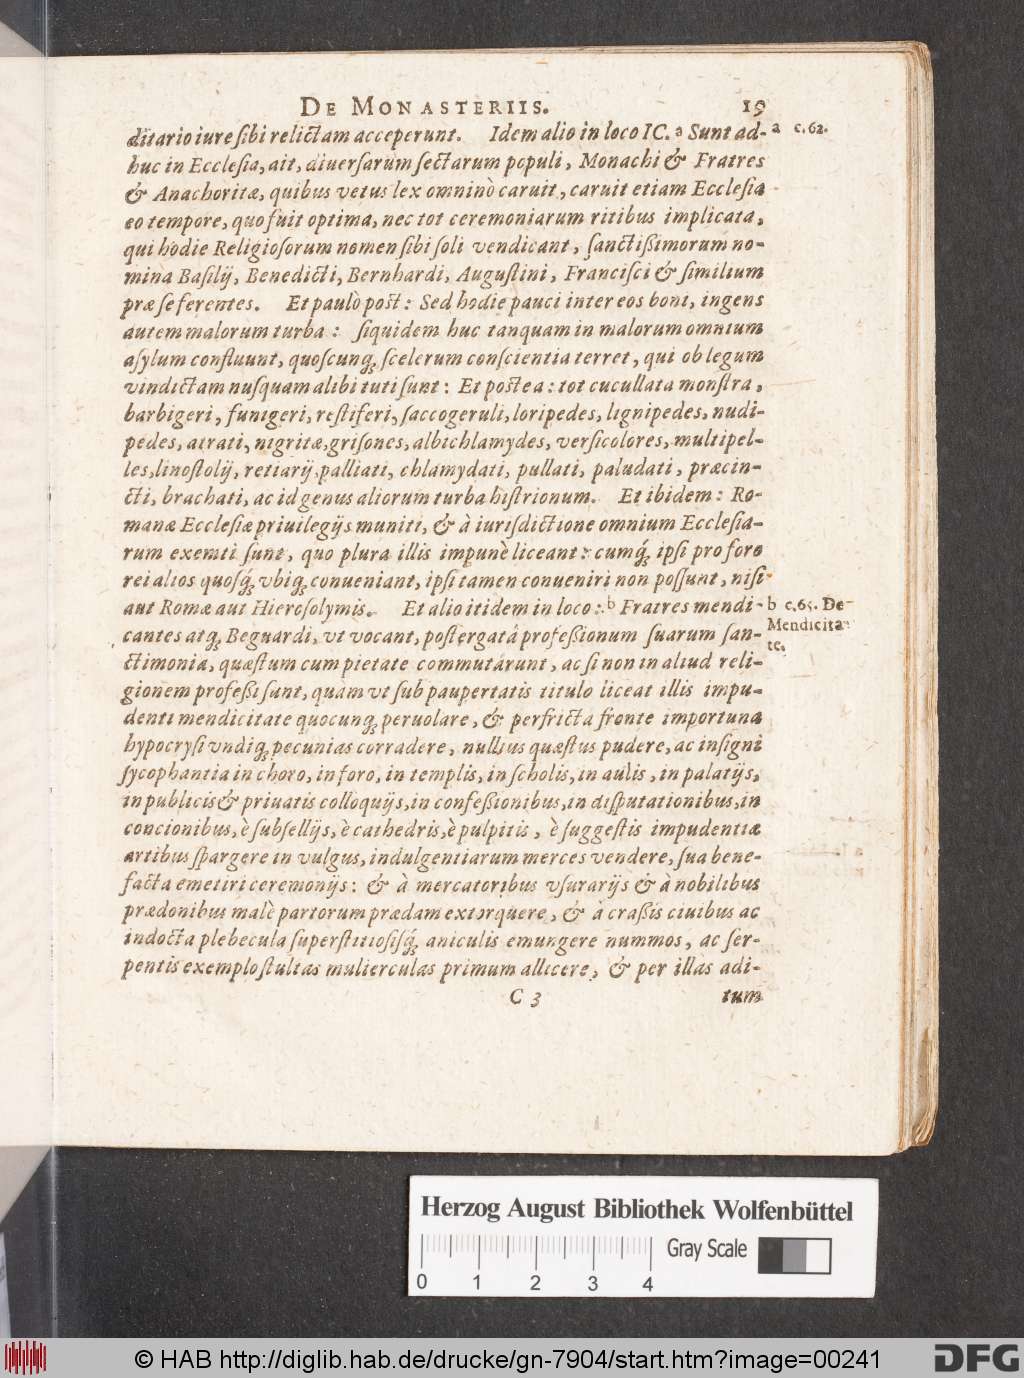 DE MONASTERIIS. 19
ditario iure sibi relictam acceperunt. Idem alio in loco IC. a Sunt ad-
a c. 62.
huc in Ecclesia, ait, diuersarum sectarum populi, Monachi & Fratres
& Anachoritæ, quibus vetus lex omninò caruit, caruit etiam Ecclesia
eo tempore, quo fuit optima, nec tot ceremoniarum ritibus implicata,
qui hodie Religiosorum nomen sibi soli vendicant, sanctißimorum no-
mina Basilij, Benedicti, Bernhardi, Augustini, Francisci & similium
præseferentes. Et paulò pòst: Sed hodie pauci inter eos boni, ingens
autem malorum turba: siquidem huc tanquam in malorum omnium
asylum confluunt, quoscunq; scelerum conscientia terret, qui ob legum
vindictam nusquam alibi tuti sunt: Et postea: tot cucullata monstra,
barbigeri, funigeri, restiferi, saccogeruli, loripedes, lignipedes, nudi-
pedes, atrati, nigritæ, grisones, albichlamydes, versicolores, multipel-
les, linostolij, retiarij, palliati, chlamydati, pullati, paludati, præcin-
cti, brachati, ac id genus aliorum turba histrionum. Et ibidem: Ro-
manæ Ecclesiæ priuilegijs muniti, & à iurisdictione omnium Ecclesia-
rum exemti sunt, quo plura illis impunè liceant: cumq́; ipsi pro foro
rei alios quosq́; vbiq; conueniant, ipsi tamen conueniri non possunt, nisi
aut Romæ aut Hierosolymis. Et alio itidem in loco: b Fratres mendi-
b c. 65. De
Mendicita-
te.
cantes atq; Begnardi, vt vocant, postergatâ profeßionum suarum san-
ctimonia, quæstum cum pietate commutârunt, ac si non in aliud reli-
gionem profeßi sunt, quam vt sub paupertatis titulo liceat illis impu-
denti mendicitate quocunq; peruolare, & perfricta fronte importuna
hypocrysi vndiq; pecunias corradere, nullius quæstus pudere, ac insigni
sycophantia in choro, in foro, in templis, in scholis, in aulis, in palatijs,
in publicis & priuatis colloquijs, in confeßionibus, in disputationibus, in
concionibus, è subsellijs, è cathedris, è pulpitis, è suggestis impudentiæ
artibus spargere in vulgus, indulgentiarum merces vendere, sua bene-
facta emetiri ceremonijs: & à mercatoribus vsurarijs & à nobilibus
prædonibus malè partorum prædam extorquere, & à craßis ciuibus ac
indocta plebecula superstitiosisq́; aniculis emungere nummos, ac ser-
pentis exemplo stultas mulierculas primum allicere, & per illas adi-
C 3 tum
Herzog August Bibliothek Wolfenbüttel
Gray Scale
0 1 2 3 4
© HAB http://diglib.hab.de/drucke/gn-7904/start.htm?image=00241
DFG